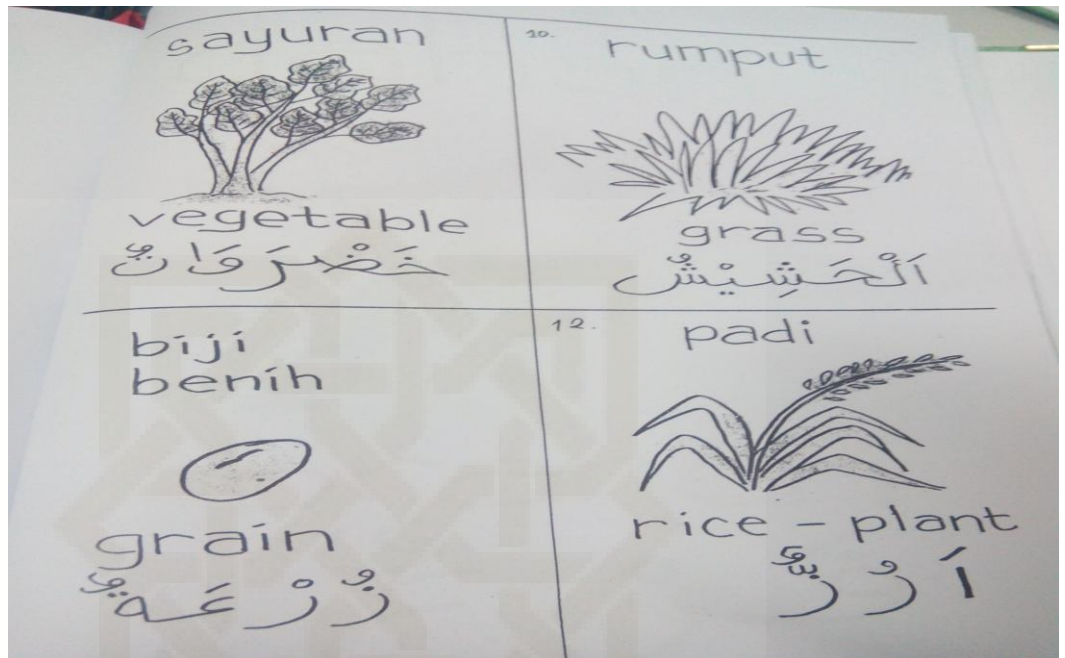 sayuran
vegetable
خَضْرَوَاتٌ
10.
rumput
grass
اَلْحَشِيْشُ
biji
benih
grain
زُرْعَةٌ
12.
padi
rice - plant
اَرُزٌّ